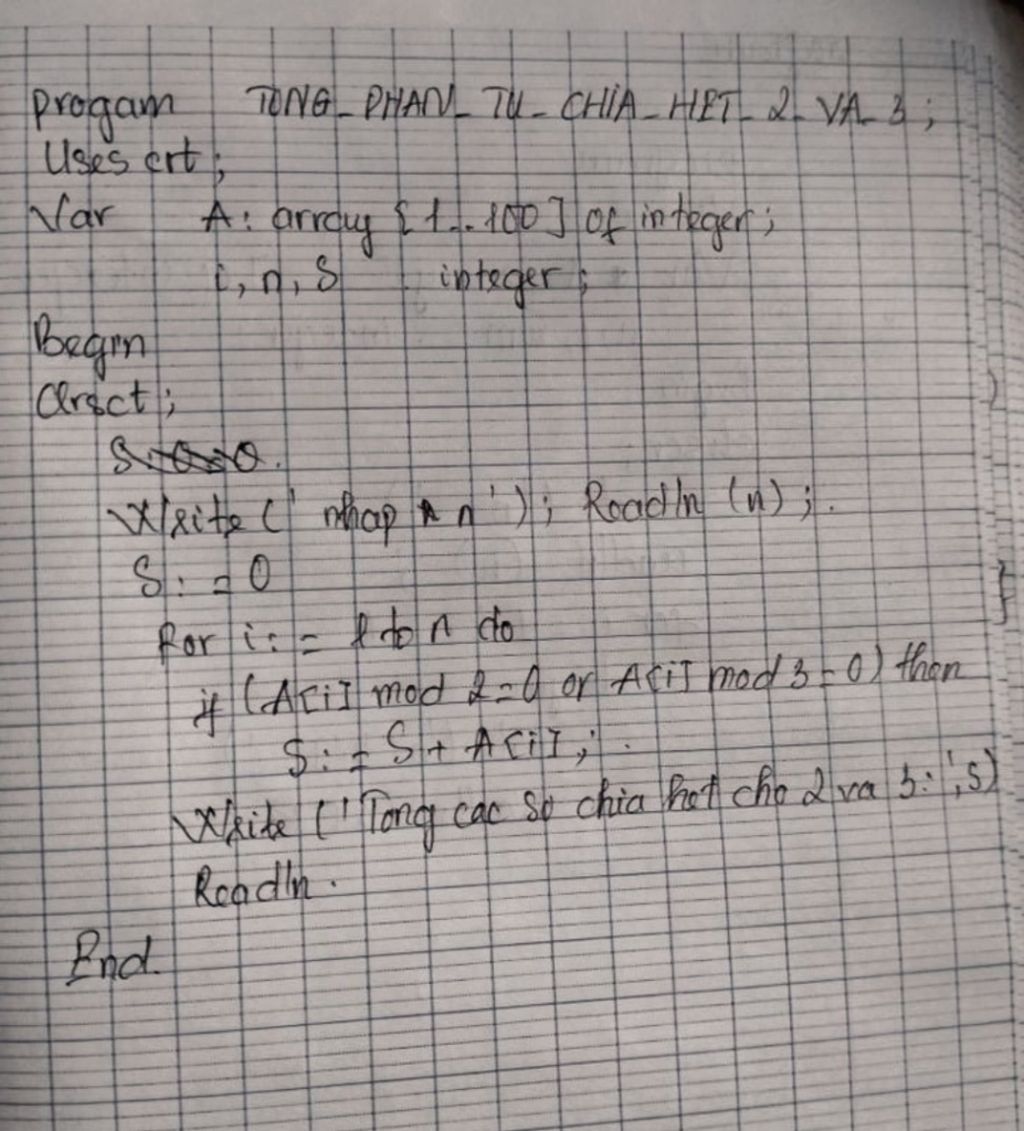 progam TONG_PHAN_TU_CHIA_HET_2_VA_3;
Uses crt;
Var A: array [1..100] of integer;
i, n, S : integer;
Begin
Clrsct;
Write (' nhap n '); Readln (n);
S:=0
for i:= 1 to n do
if (A[i] mod 2=0 or A[i] mod 3=0) then
S:=S+A[i];
Write ('Tong cac so chia het cho 2 va 3:',S)
Readln.
End.